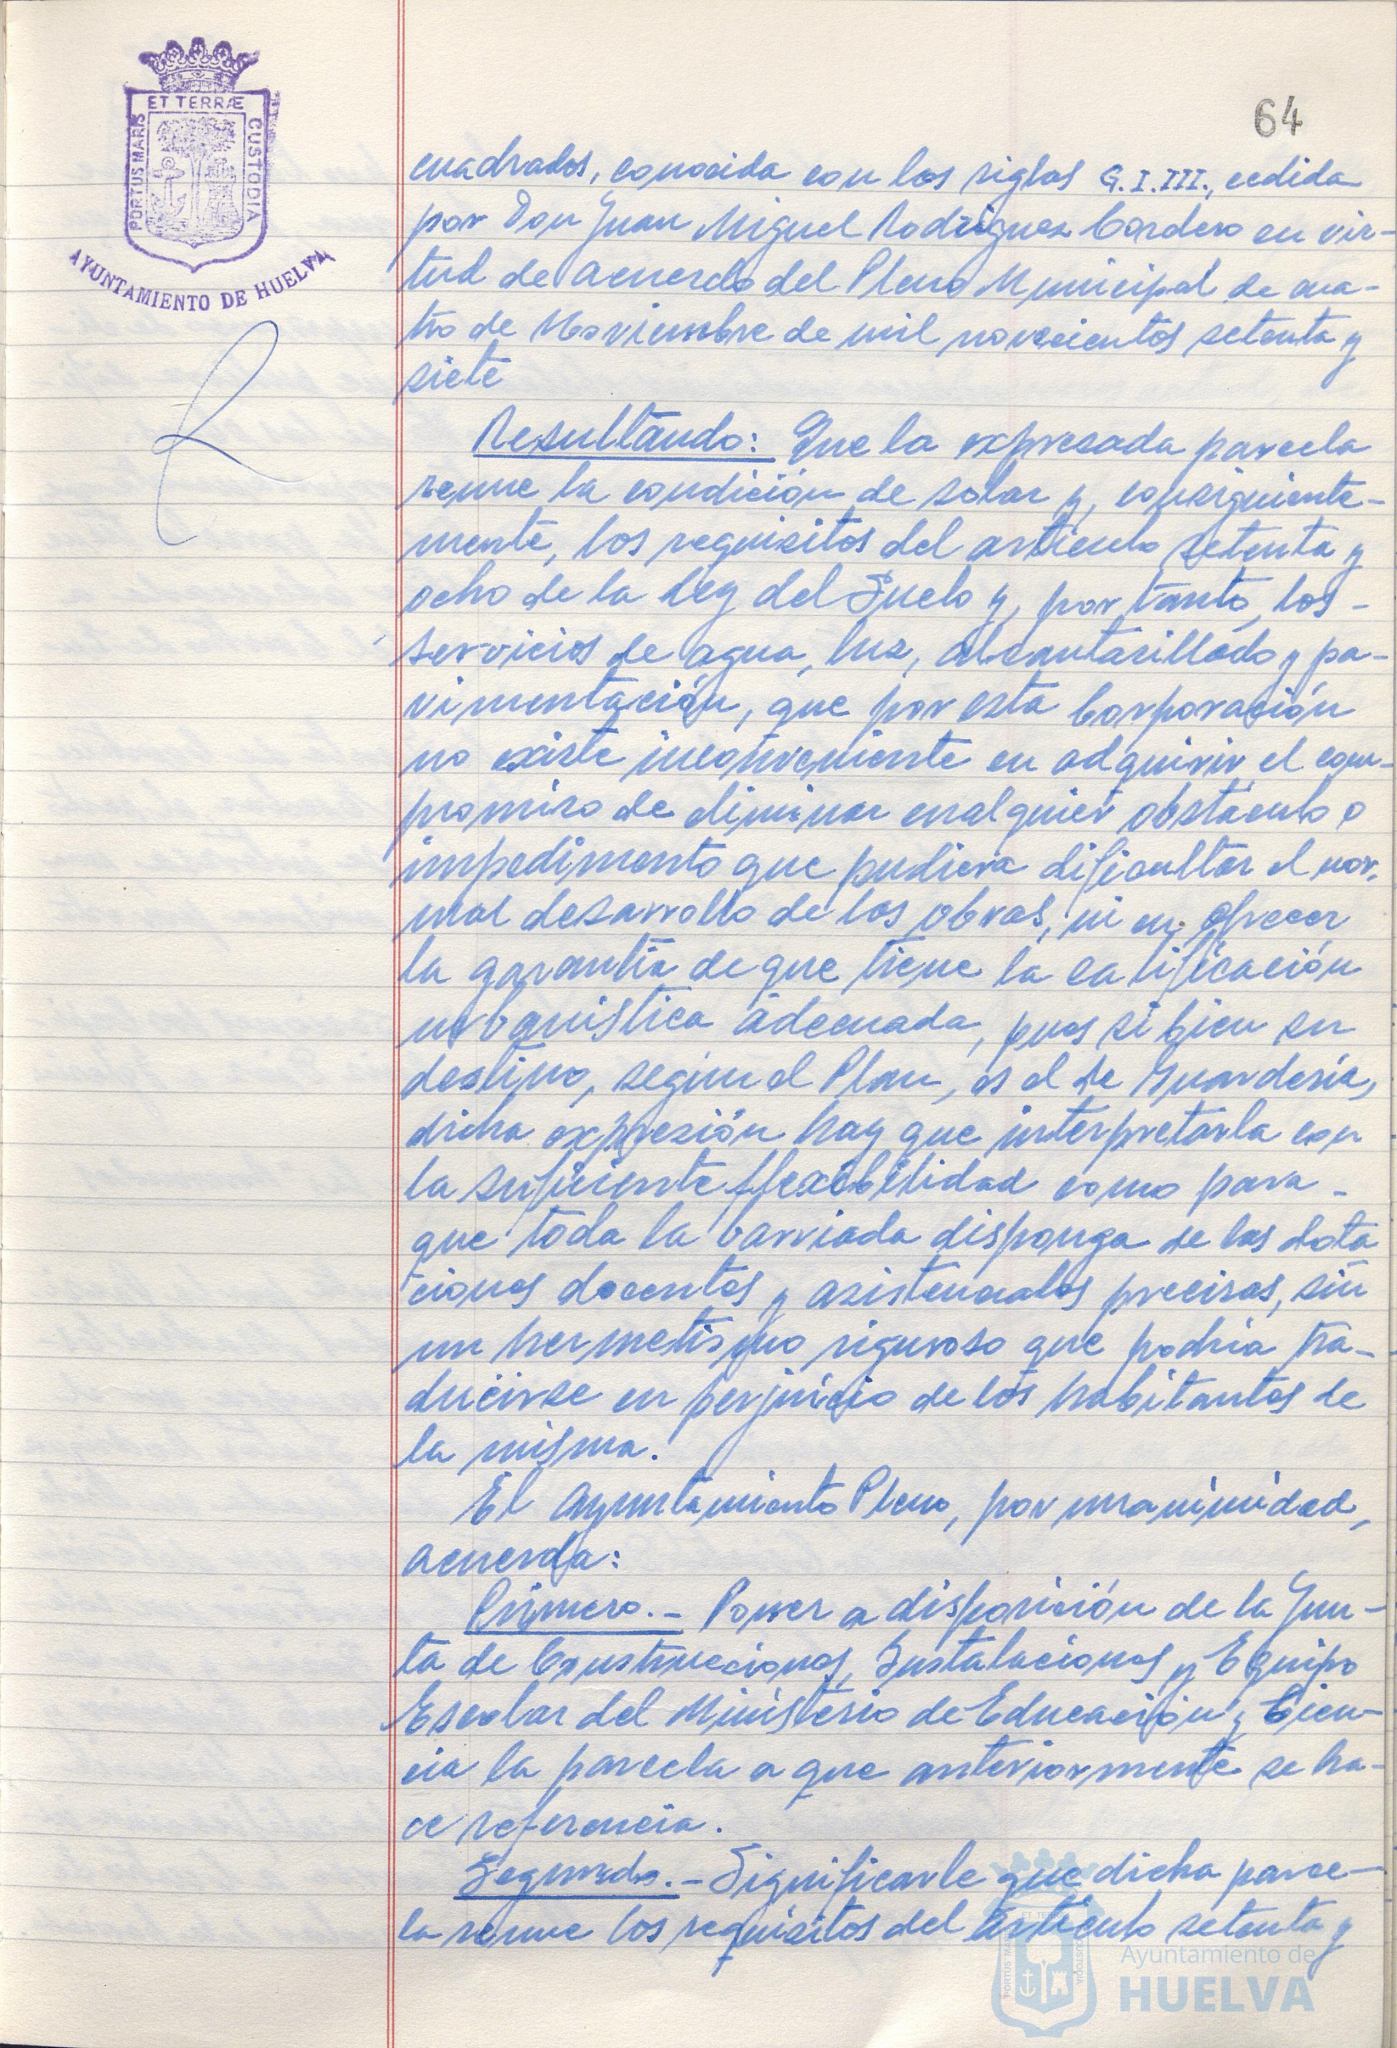 ET TERRÆ
PORTUS MARIS
CUSTODIA
AYUNTAMIENTO DE HUELVA
64
cuadrados, conocida con las siglas G.I.III., cedida
por Don Juan Miguel Rodríguez Cordero en vir-
tud de acuerdo del Pleno Municipal de cua-
tro de Noviembre de mil novecientos setenta y
siete
Resultando: Que la expresada parcela
reune la condición de solar y, consiguiente-
mente, los requisitos del artículo setenta y
ocho de la Ley del Suelo y, por tanto, los -
servicios de agua, luz, alcantarillado y pa-
vimentación, que por esta Corporación
no existe inconveniente en adquirir el com-
promiso de eliminar cualquier obstáculo o
impedimento que pudiera dificultar el nor-
mal desarrollo de las obras, ni en ofrecer
la garantía de que tiene la calificación
urbanística adecuada, pues si bien su
destino, según el Plan, es el de Guardería,
dicha expresión hay que interpretarla con
la suficiente flexibilidad como para -
que toda la barriada disponga de las dota
ciones docentes y asistenciales precisas, sin
un hermetismo riguroso que podría tra-
ducirse en perjuicio de los habitantes de
la misma.
El Ayuntamiento Pleno, por unanimidad,
acuerda:
Primero.- Poner a disposición de la Jun-
ta de Construcciones, Instalaciones y Equipo
Escolar del Ministerio de Educación y Cien-
cia la parcela a que anteriormente se ha-
ce referencia.
Segundo.- Significarle que dicha parce-
la reune los requisitos del artículo setenta y
Ayuntamiento de
HUELVA